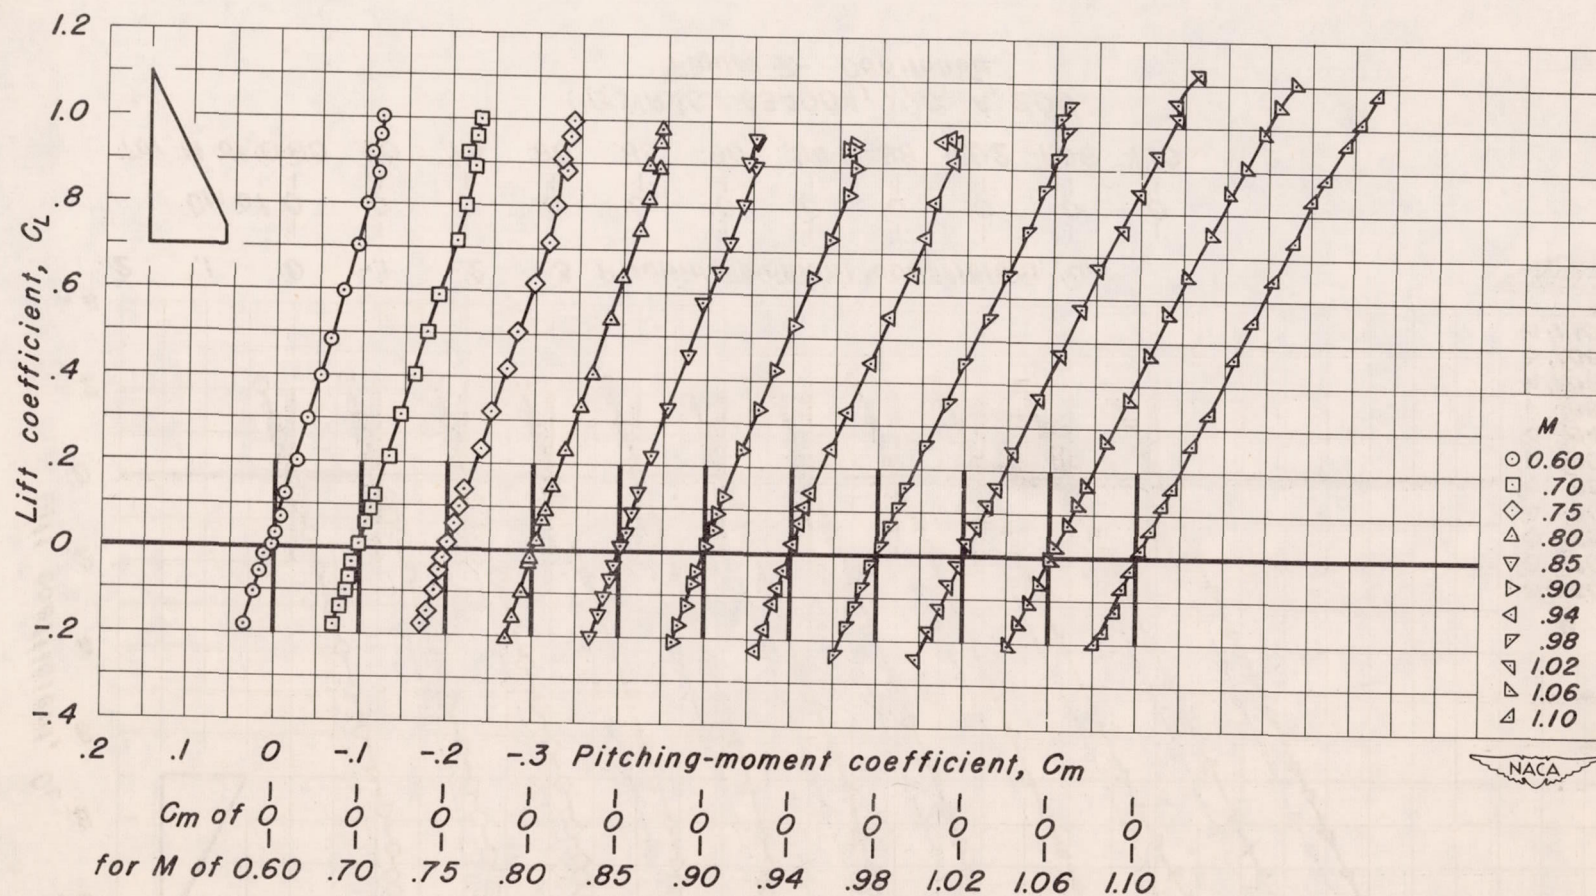 1.2
1.0
.8
.6
.4
.2
0
-.2
-.4
Lift coefficient, CL
.2 .1 0 -.1 -.2 -.3 Pitching-moment coefficient, Cm
Cm of 0 0 0 0 0 0 0 0 0 0 0
for M of 0.60 .70 .75 .80 .85 .90 .94 .98 1.02 1.06 1.10
M
0.60
.70
.75
.80
.85
.90
.94
.98
1.02
1.06
1.10
NACA